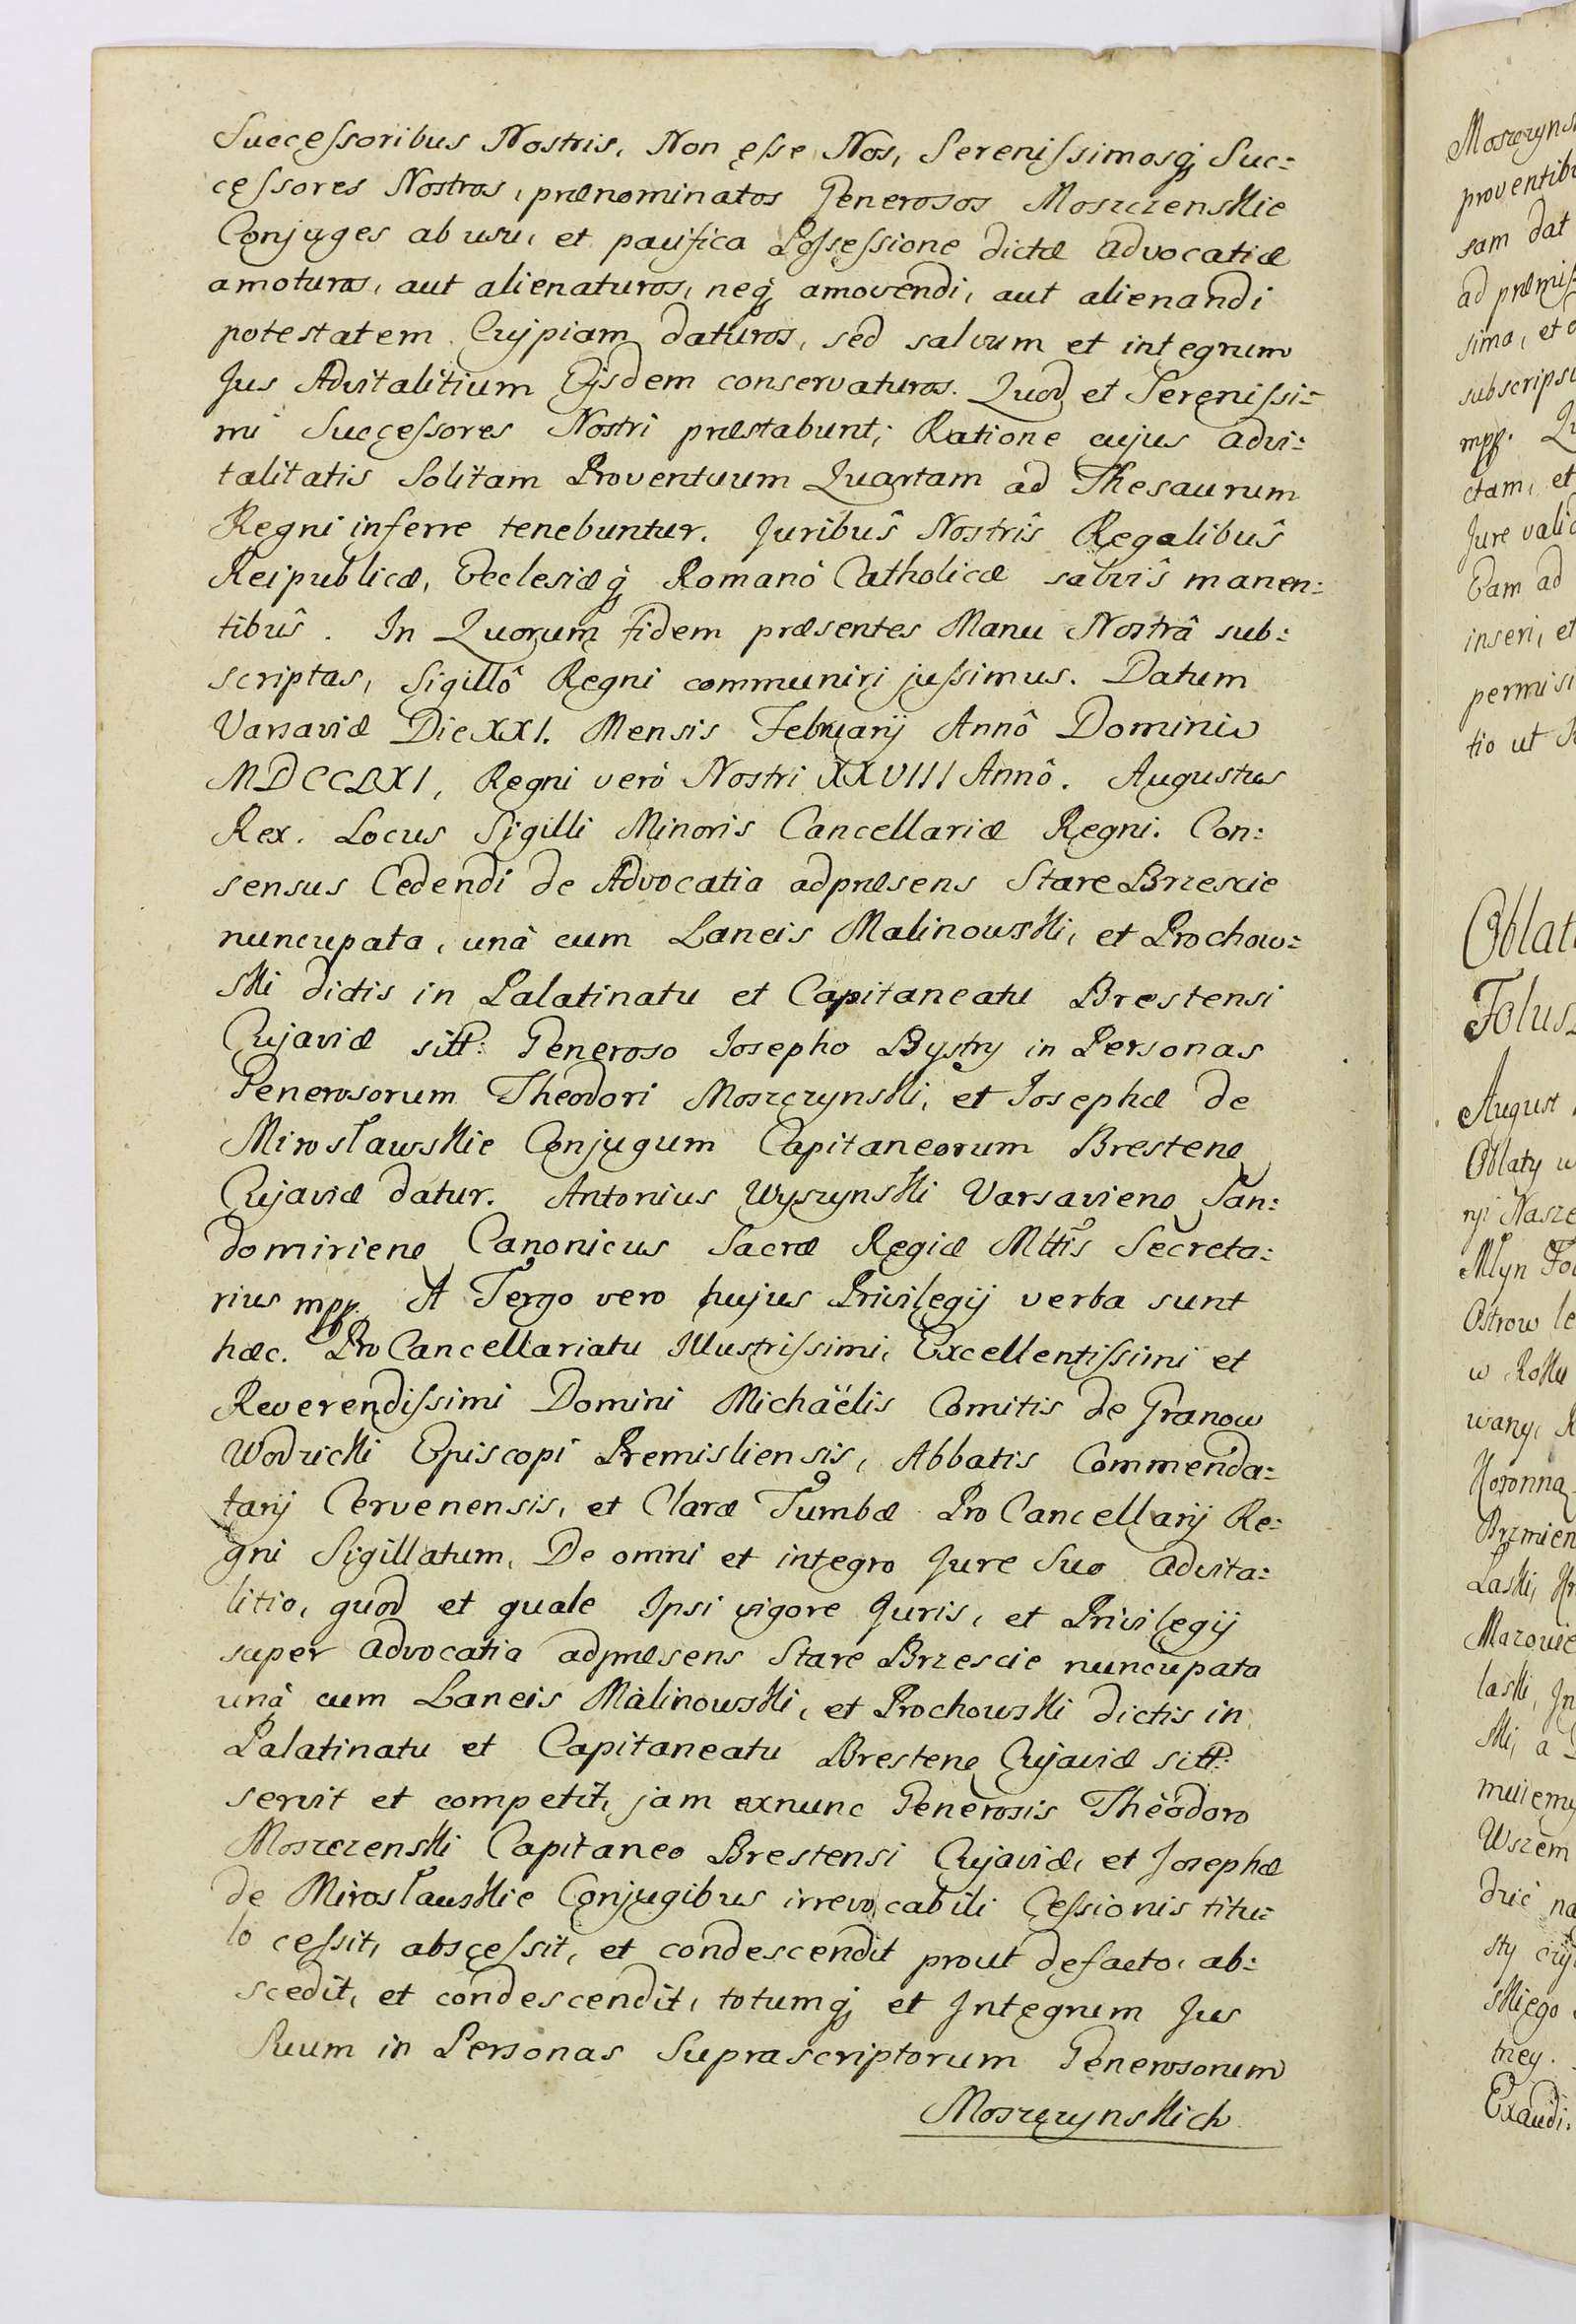 Successoribus Nostris, Non esse Nos, Serenissimosq; Suc=
cessores Nostros, prænominatos Generosos Moszczenskie
Conjuges ab usu, et pacifica Possessione dictæ advocatiæ
amoturos, aut alienaturos, neq; amovendi, aut alienandi
potestatem Cujpiam daturos, sed salvum et integrum
Jus Advitalitium Ejsdem conservaturos. Quod et Serenissi=
mi Successores Nostri præstabunt; Ratione cujus advi=
talitatis Solitam Proventuum Quartam ad Thesaurum
Regni inferre tenebuntur. Juribûs Nostrîs Regalibûs
Reipublicæ, Ecclesiæq; Romanô Catholicæ salvîs manen=
tibûs. In Quorum fidem præsentes Manu Nostrâ sub=
scriptas, Sigillô Regni communiri jussimus. Datum
Varsaviæ Die XXI. Mensis Februarij Annô Domini
MDCCLXI, Regni verò Nostri XXVIII Annô. Augustus
Rex. Locus Sigilli Minoris Cancellariæ Regni. Con=
sensus Cedendi de Advocatia adpræsens Stare Brzescie
nuncupata, unà cum Laneis Malinowski, et Prochow=
ski dictis in Palatinatu et Capitaneatu Brestensi
Cujaviæ sitt: Generoso Josepho Bystry in Personas
Generosorum Theodori Moszczynski, et Josephæ de
Mirosławskie Conjugum Capitaneorum Brestene
Cujaviæ datur. Antonius Wyszynski Varsaviene San=
domiriene Canonicus Sacræ Regiæ Mttis Secreta=
rius mpp. A Tergo vero hujus Privilegij verba sunt
hæc. Pro Cancellariatu Illustrissimi, Excellentissimi et
Reverendissimi Domini Michaëlis Comitis de Granow
Wodzicki Episcopi Premisliensis, Abbatis Commenda=
tarij Cervenensis, et Claræ Tumbæ Pro Cancellarij Re=
gni Sigillatum. De omni et integro Jure Suo advita=
litio, quod et quale Ipsi vigore Juris, et Privilegij
super advocatia adpræsens Stare Brzescie nuncupata
unà cum Laneis Malinowski, et Prochowski dictis in
Palatinatu et Capitaneatu Brestene Cujaviæ sitt:
servit et competit, jam exnunc Generosis Theodoro
Moszczenski Capitaneo Brestensi Cujaviæ, et Josephæ
de Mirosławskie Conjugibus irrevocabili Cessionis titu=
lo cessit, abscessit, et condescendit prout defacto, ab=
scedit, et condescendit, totumq; et Integrum Jus
Suum in Personas Suprascriptorum Generosorum
Moszczynskich
Moszczyns
proventib
sam dat
ad præmiss
sima, et
subscrips
mpp. Qu
ctam, et
Jure valid
Eam ad
inseri, et
permisi
tio ut
Oblat
Folus
August
Oblaty w
nji Nasze
Młyn Fol
Ostrow le
w Roku
wany,
Koronna
Brzmien
Laski,
Mazowie
laski, In
ski, a
muiemy
Wszem
dzic na
sty czy
skiego
trzey.
Exaudi.